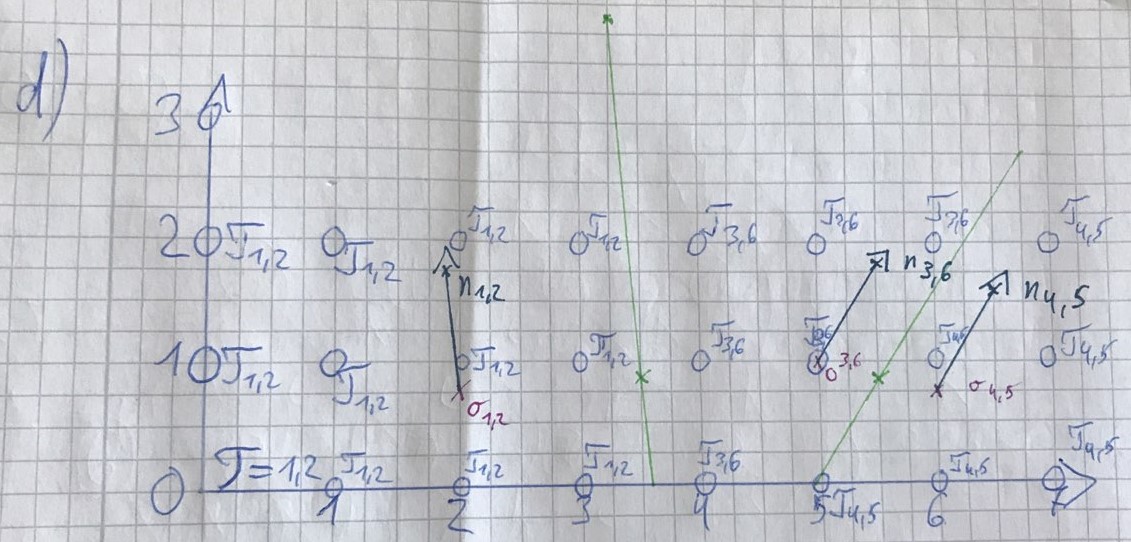 d)
3
2 J1,2 J1,2 J1,2 J1,2 J3,6 J3,6 J3,6 J4,5
n1,2 n3,6 n4,5
1 J1,2 J1,2 J1,2 J1,2 J3,6 J3,6 J4,5 J4,5
σ1,2 σ3,6 σ4,5
0 J=1,2 J1,2 J1,2 J1,2 J3,6 J4,5 J4,5 J4,5
1 2 3 4 5 6 7